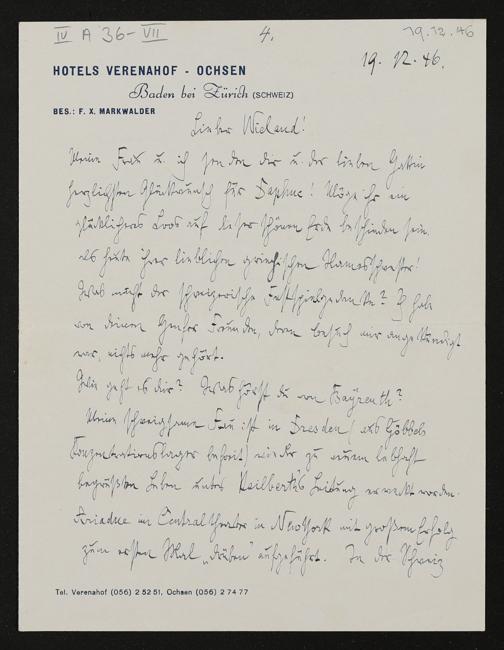 IV A 36-VII
4.
19.12.46
19. 12. 46.
HOTELS VERENAHOF - OCHSEN
Baden bei Zürich (SCHWEIZ)
BES.: F. X. MARKWALDER
Lieber Wieland!
Meine Frau u. ich senden dir u. der lieben Gattin
herzlichsten Glückwunsch für Daphne! Möge ihr ein
glücklicheres Loos auf dieser schönen Erde beschieden sein
als heute ihrer lieblichen griechischen Namensschwester!
Was macht der schweizerische Festspielgedanke? Ich habe
von deinem Genfer Freunde, deren Besuch mir angekündigt
war, nichts mehr gehört.
Wie geht es dir? Was hörst du von Bayreuth?
Meine schweigsame Frau ist in Dresden (aus Göbbels
Konzentrationslager befreit) wieder zu einem lebhaft
begrüßten Leben unter Keilberths Leitung erweckt worden.
Ariadne im Centraltheater in Newyork mit großem Erfolg
zum ersten Mal „drüben" aufgeführt. In der Schweiz
Tel. Verenahof (056) 2 52 51, Ochsen (056) 2 74 77